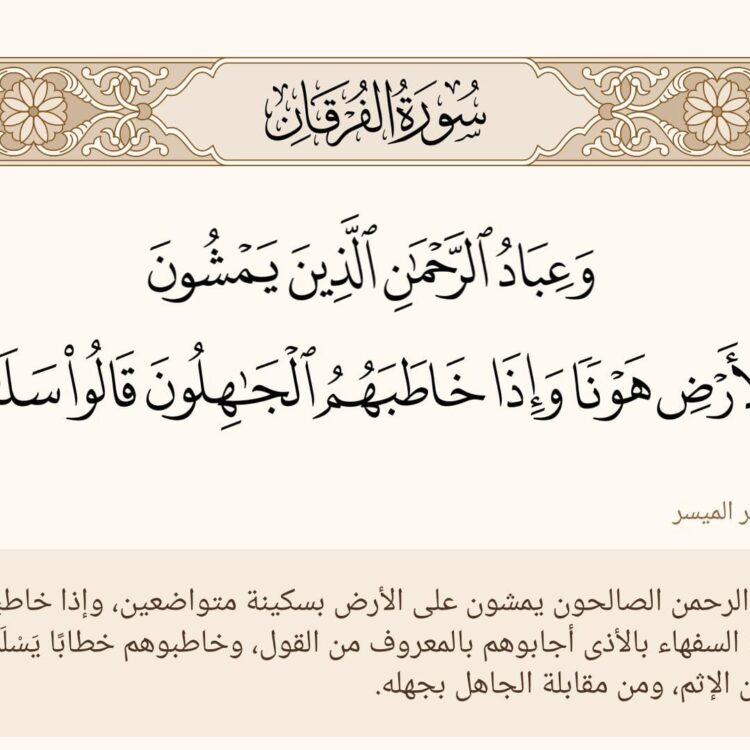 سُورَةُ الفُرْقَانِ
وَعِبَادُ ٱلرَّحْمَٰنِ ٱلَّذِينَ يَمْشُونَ
هَوْنًا وَإِذَا خَاطَبَهُمُ ٱلْجَٰهِلُونَ قَالُوا۟
الميسر
الرحمن الصالحون يمشون على الأرض بسكينة متواضعين، وإذا
السفهاء بالأذى أجابوهم بالمعروف من القول، وخاطبوهم خطابًا
الإثم، ومن مقابلة الجاهل بجهله.